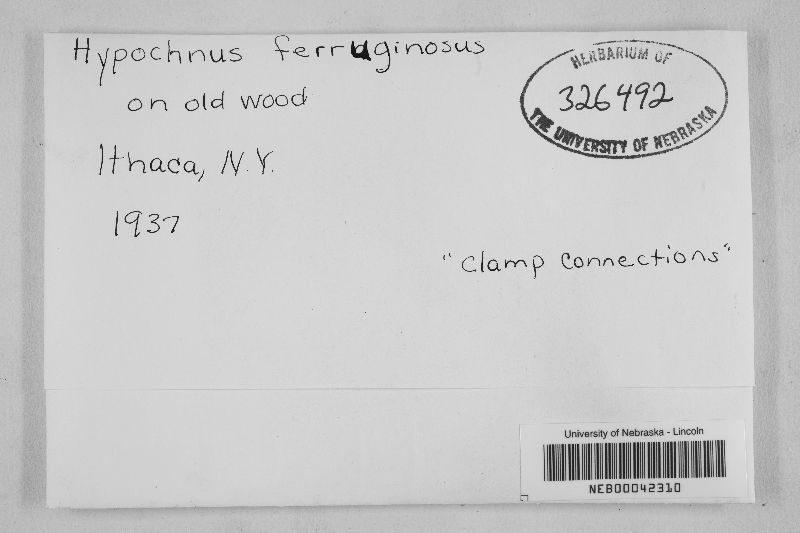 Hypochnus ferruginosus
on old wood
Ithaca, N.Y.
1937
"clamp connections"
HERBARIUM OF
326492
THE UNIVERSITY OF NEBRASKA
University of Nebraska - Lincoln
NEB00042310